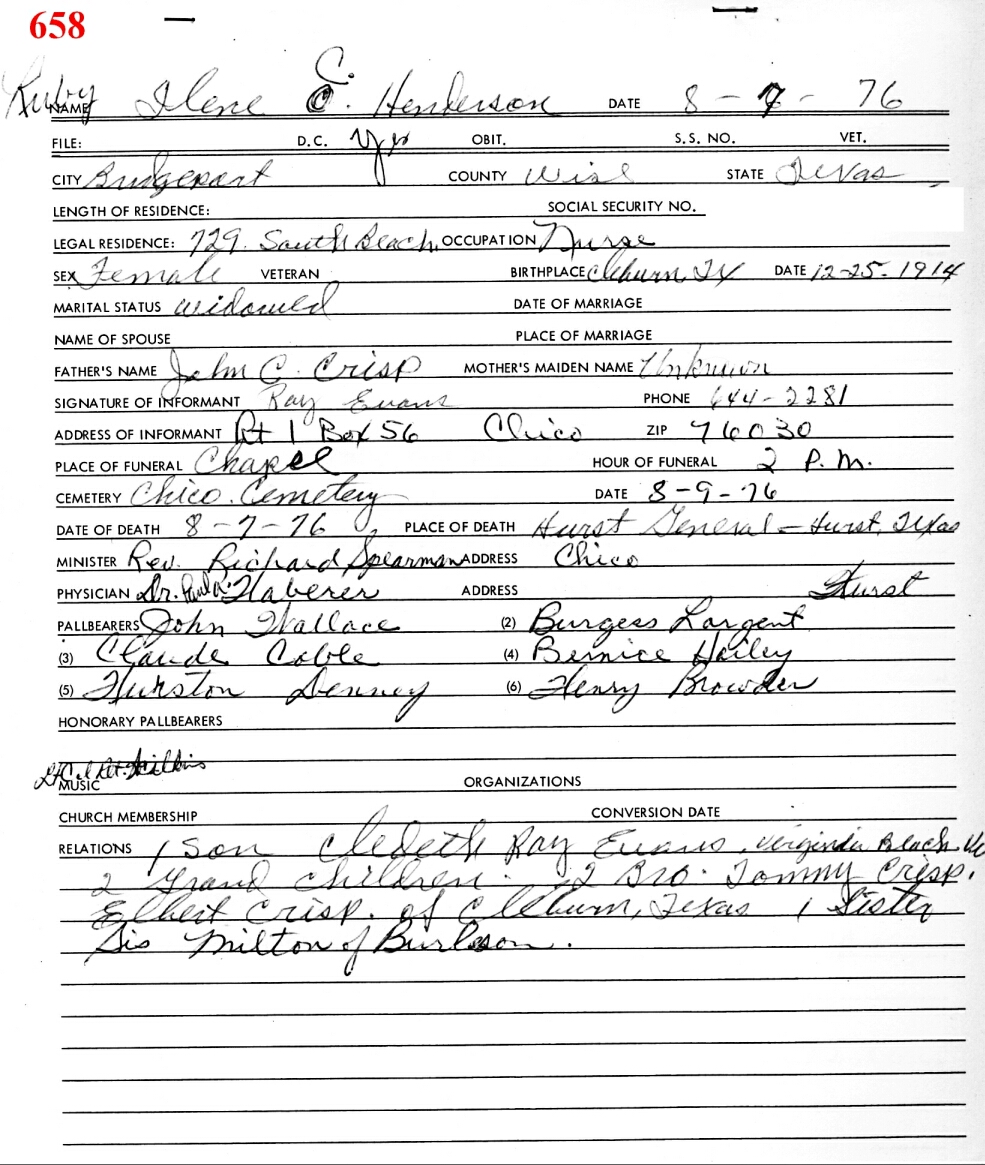 658
Ruby NAME Ilene C. Henderson DATE 8-7-76
FILE: D.C. Yes OBIT. S.S. NO. VET.
CITY Bridgeport COUNTY Wise STATE Texas
LENGTH OF RESIDENCE: SOCIAL SECURITY NO.
LEGAL RESIDENCE: 729 South Beach OCCUPATION Nurse
SEX Female VETERAN BIRTHPLACE Cleburn, TX DATE 12-25-1914
MARITAL STATUS widowed DATE OF MARRIAGE
NAME OF SPOUSE PLACE OF MARRIAGE
FATHER'S NAME John C. Crisp MOTHER'S MAIDEN NAME Unknown
SIGNATURE OF INFORMANT Ray Evans PHONE 644-2281
ADDRESS OF INFORMANT Rt 1 Box 56 Chico ZIP 76030
PLACE OF FUNERAL Chapel HOUR OF FUNERAL 2 P.M.
CEMETERY Chico Cemetery DATE 8-9-76
DATE OF DEATH 8-7-76 PLACE OF DEATH Hurst General - Hurst, Texas
MINISTER Rev. Richard Spearman ADDRESS Chico
PHYSICIAN Dr. Paul Haberer ADDRESS Hurst
PALLBEARERS John Wallace (2) Burgess Largent
(3) Claude Coble (4) Bernice Hailey
(5) Hurston Denney (6) Henry Browder
HONORARY PALLBEARERS
MUSIC ORGANIZATIONS
CHURCH MEMBERSHIP CONVERSION DATE
RELATIONS 1 Son Cledeth Ray Evans, Virginia Beach Va
2 Grand Children. 2 Bro. Tommy Crisp.
Elbert Crisp. of Cleburn, Texas 1 Sister
Sis Milton of Burleson.